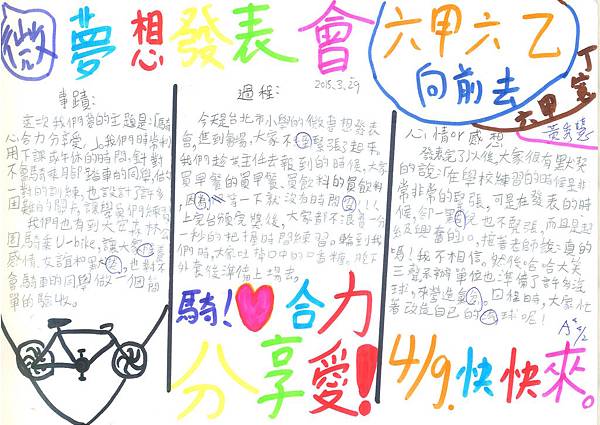 微夢想發表會
六甲六乙
向前去
六甲
2015.3.29
事蹟:
這次我們的主題是:「騎
心合力分享愛。」我們時常利
用下課或午休的時間,針對
不會騎單車的同學做一
對一的訓練,也設計了許多
困難的關卡,讓學員們練習
我們也有到大安森林公
園騎乘U-bike,讓大家
感情、友誼和默契
會騎車的同學做一個簡
單的驗收。
過程:
今天是台北市小學的微夢想發表
會,進到會場,大家不
緊張了起來。
我們趁主任去報到的時候,大家
買早餐的買早餐、買飲料的買飲料
,因為等一下就沒有時間
上完台頒完獎後,大家都不浪費一分
一秒的把握時間練習。輪到我
們時,大家吐
口中的口香糖,脫下
外套後準備上場去。
心情or感想
發表完了以後,大家很有默契
的說:「在學校練習的時候是非
常非常的緊張,可是在發表的時
候,卻一
也不緊張,而且是超
級興奮的。」
嗎!我不相信。然後哈哈大笑
三聲。承辦單位也準備了許多汽
球,來營造氣
。回程時,大家忙
著改造自己的
球呢!
騎!♥合力
分享愛!
4/9.快快來。